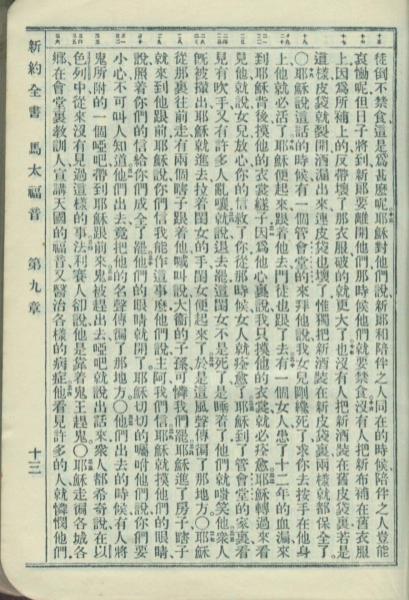 徒倒不禁食這是爲甚麽呢耶穌對他們說新郎和陪伴之人同在的時候陪伴之人豈能
哀慟呢但日子將到新郎要離開他們那時候他們就要禁食沒有人把新布補在舊衣服
上因爲所補上的反帶壞了那衣服破的就更大了也沒有人把新酒裝在舊皮袋裏若是
這樣皮袋就裂開酒漏出來連皮袋也壞了惟獨把新酒裝在新皮袋裏兩樣就都保全了
〇耶穌說這話的時候有一個管會堂的來拜他說我女兒剛纔死了求你去按手在他身
上他就必活了耶穌便起來跟着他去門徒也跟了去有一個女人患了十二年的血漏來
到耶穌背後摸他的衣裳䍁子因爲他心裏說我只摸他的衣裳就必痊愈耶穌轉過來看
見他就說女兒放心你的信救了你從那時候女人就痊愈了耶穌到了管會堂的家裏看
見有吹手又有許多人亂嚷就說退去罷這閨女不是死了是睡着了他們就嗤笑他衆人
旣被攆出耶穌就進去拉着閨女的手閨女便起來了於是這風聲傳徧了那地方〇耶穌
從那裏往前走有兩個瞎子跟着他喊叫說大衞的子孫可憐我們罷耶穌進了房子瞎子
就來到他跟前耶穌說你們信我能作這事麽他們說主阿我們信耶穌就摸他們的眼睛
說照着你們的信給你們成全了罷他們的眼睛就開了耶穌切切的囑咐他們說你們要
小心不可叫人知道他們出去竟把他的名聲傳徧了那地方〇他們出去的時候有人將
鬼所附的一個啞吧帶到耶穌跟前來鬼被趕出去啞吧就說出話來衆人都希奇說在以
色列中從來沒有見過這樣的事法利賽人卻說他是靠着鬼王趕鬼〇耶穌走徧各城各
鄉在會堂裏教訓人宣講天國的福音又醫治各樣的病症他看見許多的人就憐憫他們
新約全書 馬太福音 第九章 十三